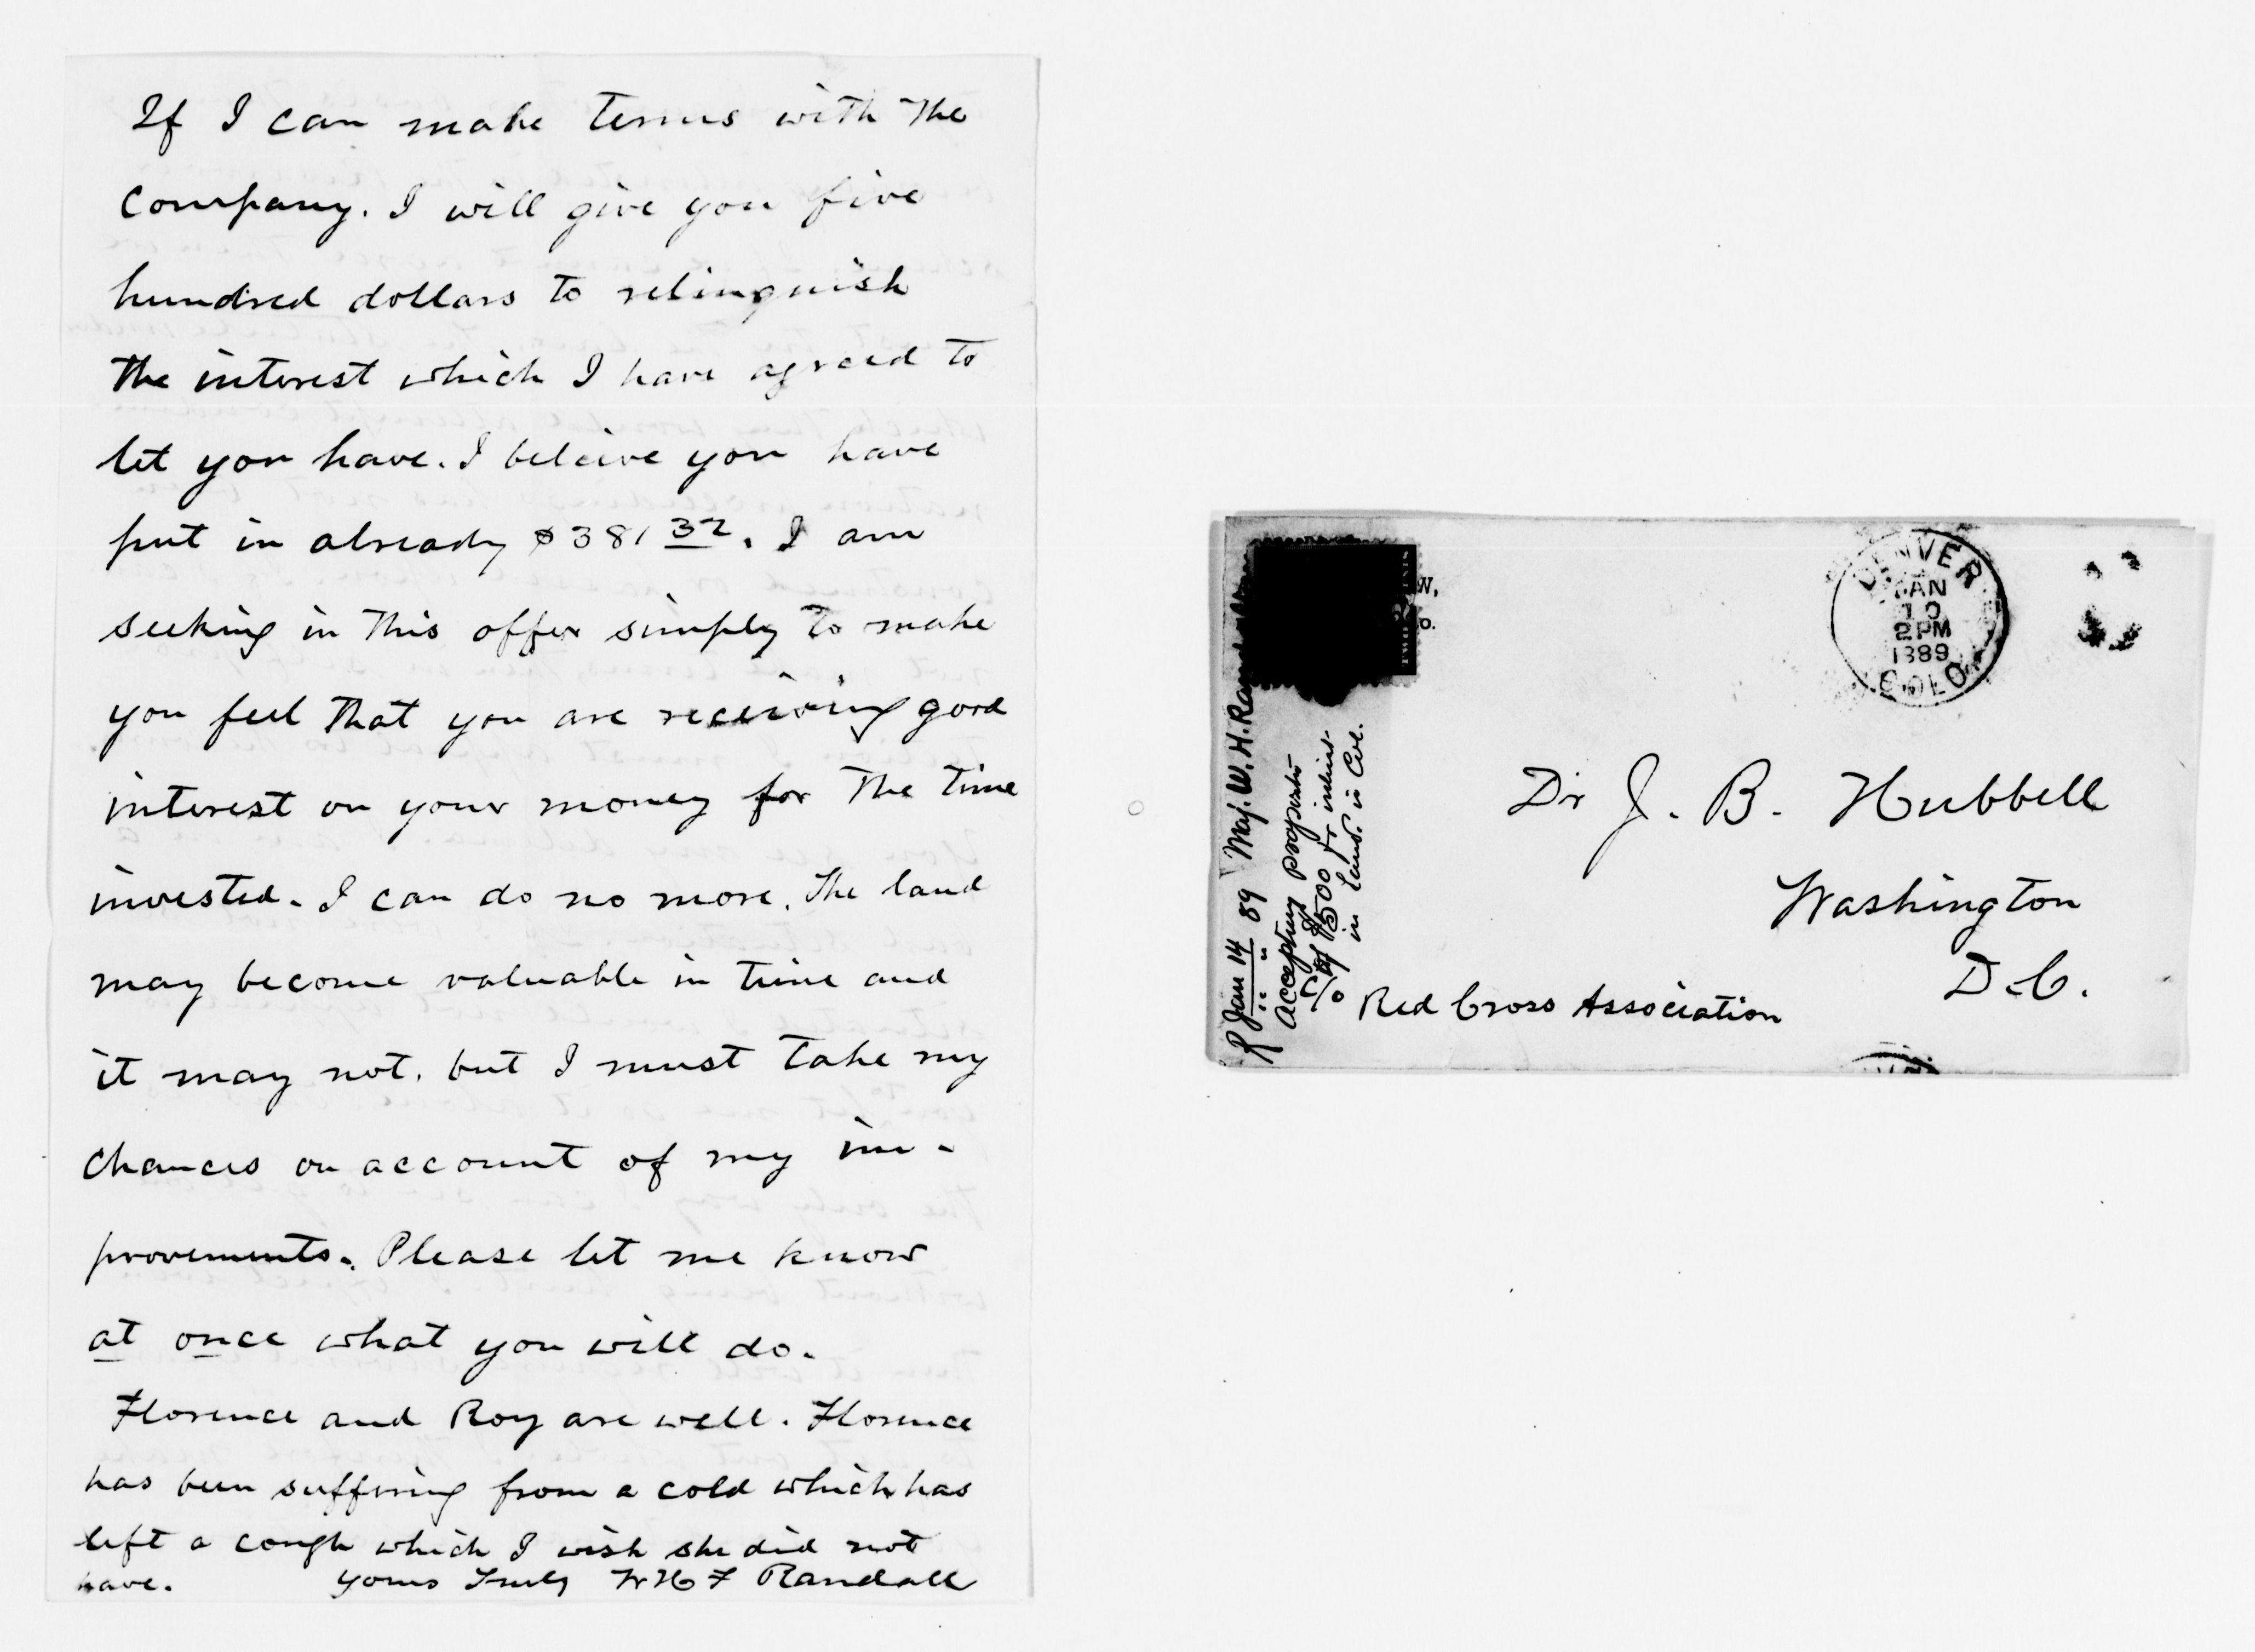 If I can make terms with the
company. I will give you five
hundred dollars to relinquish
the interest which I have agreed to
let you have. I beleive you have
put in already $381 32. I am
seeking in this offer simply to make
you feel that you are receiving good
interest on your money for the time
invested. I can do no more. The land
may become valuable in time and
it may not, but I must take my
chances on account of my im-
provements. Please let me know
at once what you will do.
Florence and Roy are well. Florence
has been suffering from a cold which has
left a cough which I wish she did not
have. Yours Truly W H F Randall
W,
o.
TWO CENTS
DENVER
JAN
10
2 PM
1889
COLO.
Dr J. B. Hubbell
Washington
D.C.
c/o Red Cross Association
R Jan 14 89 Maj. W. H. Randall
Accepting
of $500 for
in Land in